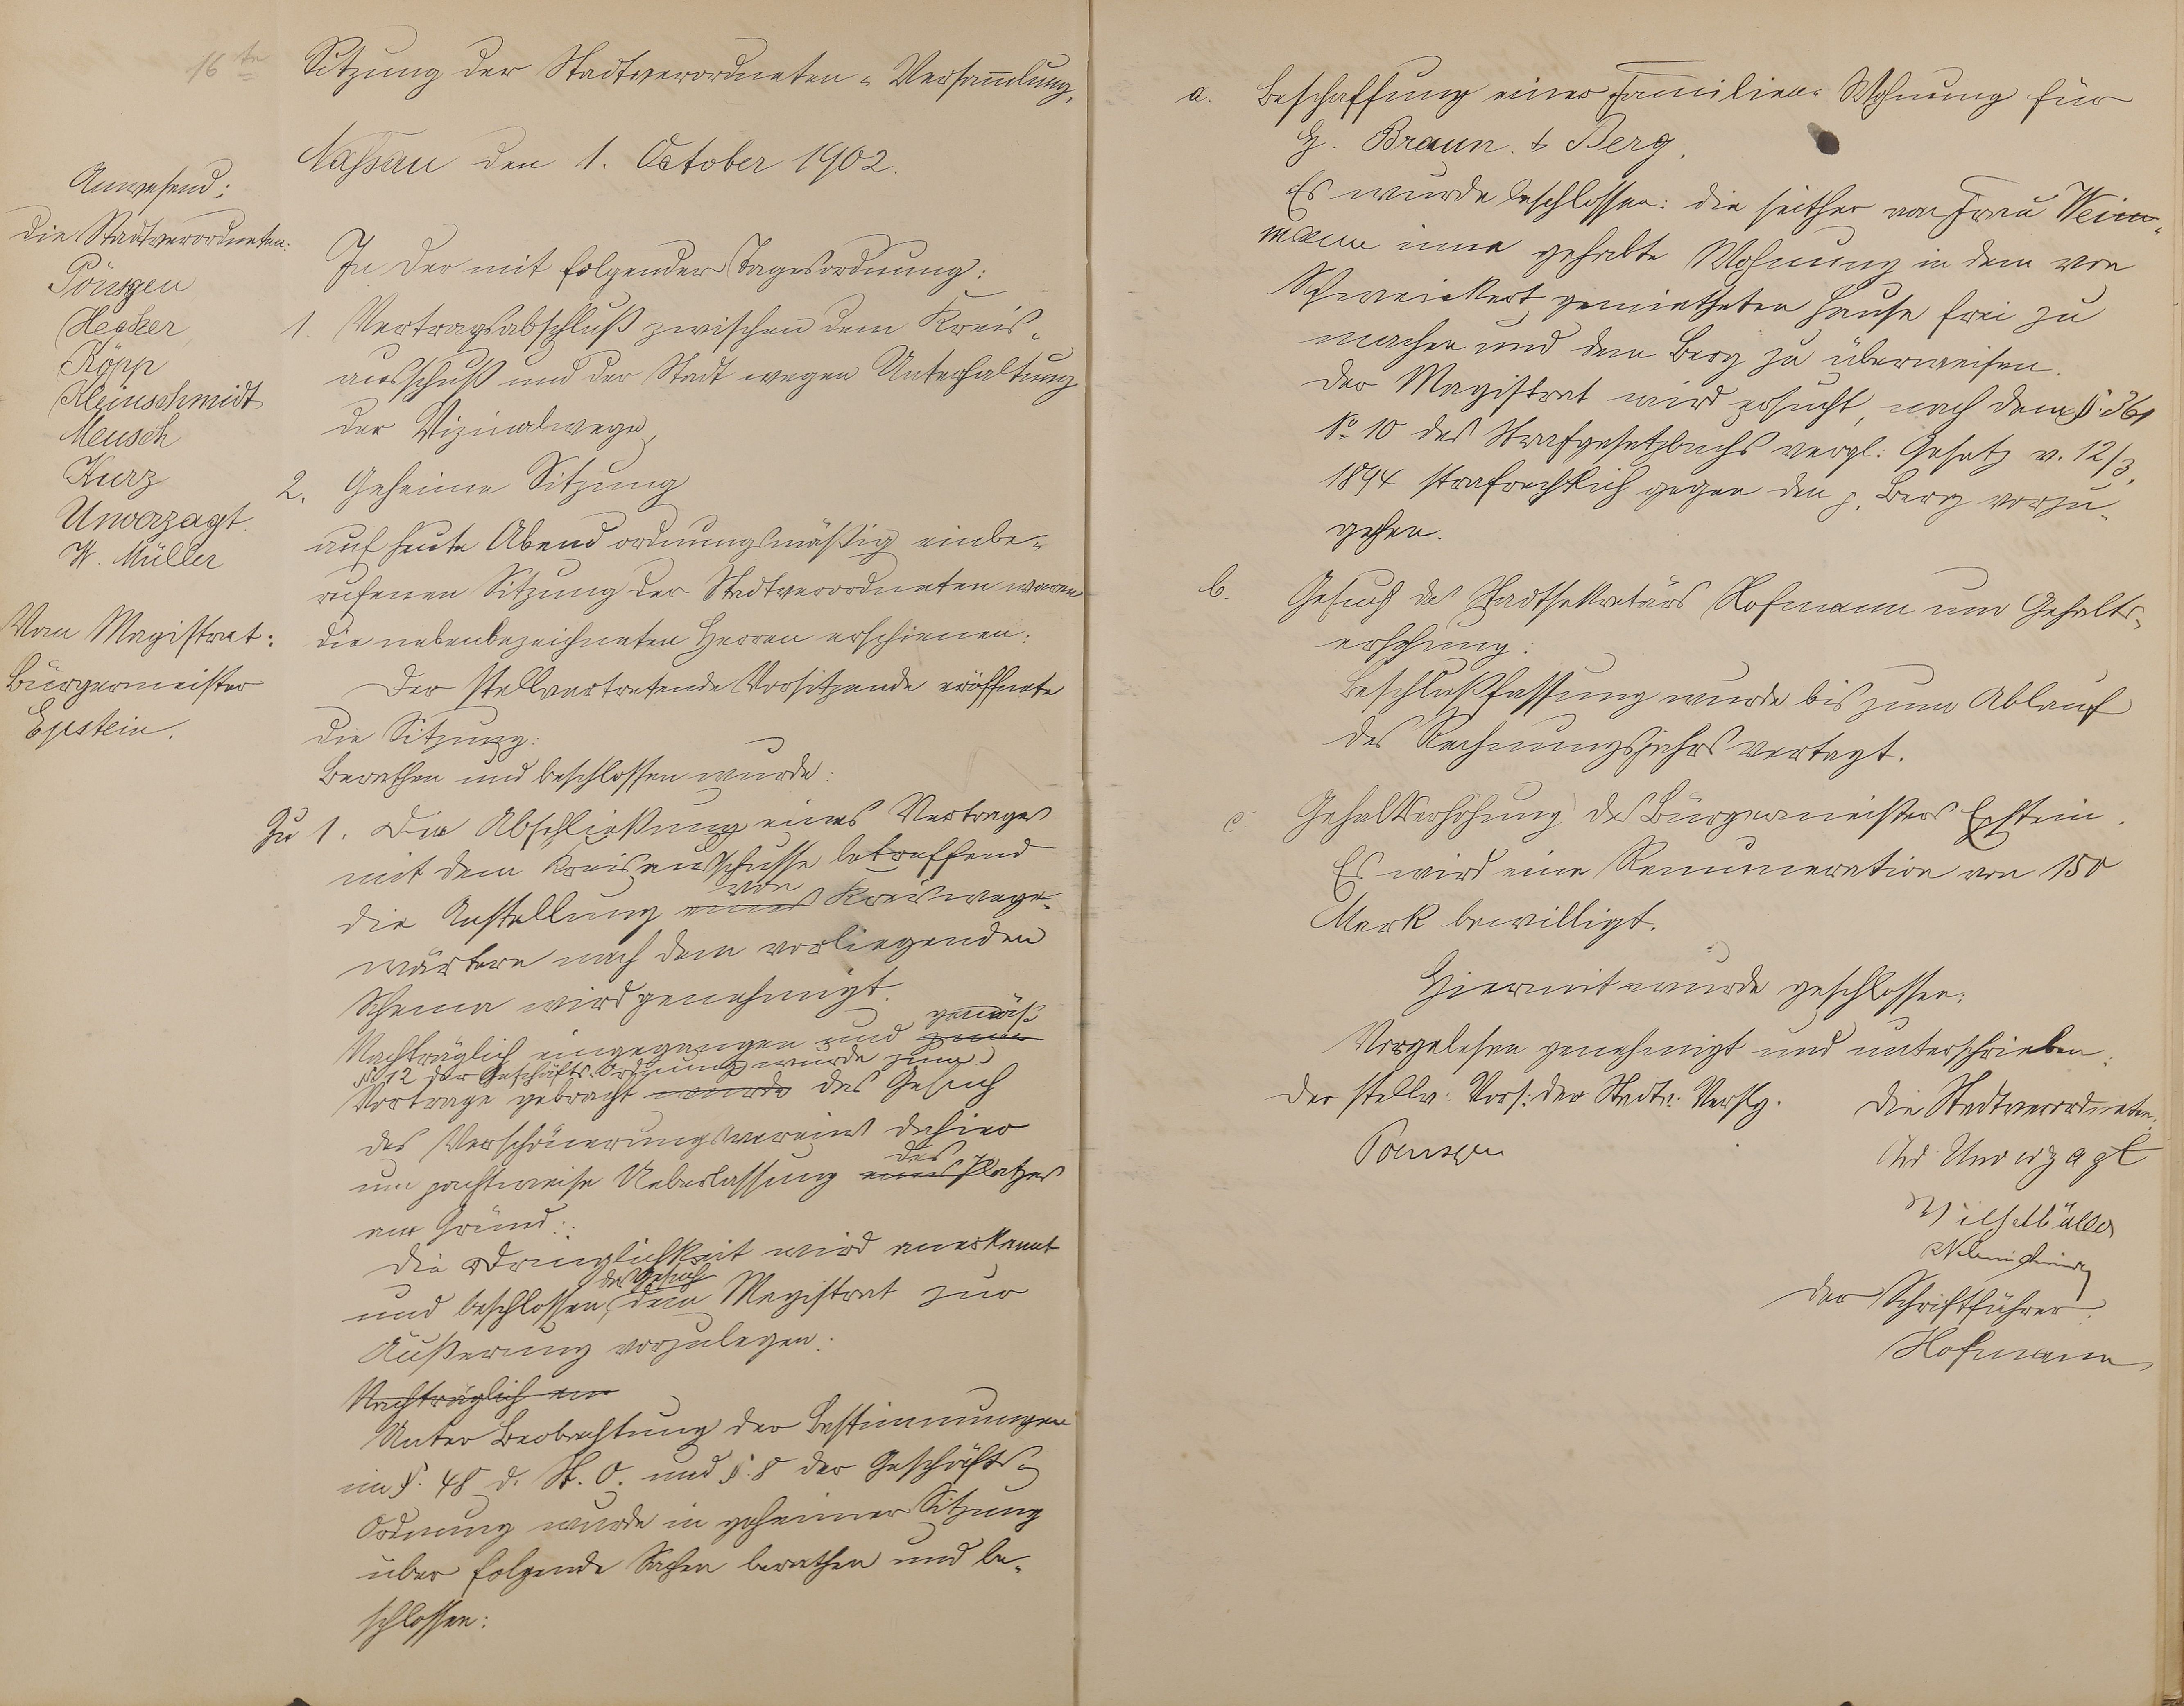 16te Sitzung der Stadtverordneten-Versammlung.
Nassau den 1. October 1902.
Anwesend:
die Stadtverordneten:
Pönsgen
Hecker
Köpp
Kleinschmidt
Meusch
Kurz
Unverzagt
W. Müller
Vom Magistrat:
Bürgermeister
Epstein.
In der mit folgender Tagesordnung:
1. Vertragsabschluß zwischen dem Kreis-
ausschuß und der Stadt wegen Unterhaltung
der Vizinalwege,
2. Geheime Sitzung
auf heute Abend ordnungsmäßig einbe-
rufenen Sitzung der Stadtverordneten waren
die nebenbezeichneten Herren erschienen:
Der stellvertretende Vorsitzende eröffnete
die Sitzung:
Berathen und beschlossen wurde:
Zu 1. Die Abschließung eines Vertrages
mit dem Kreisausschusse betreffend
die Anstellung eines von Kreiswege-
wärtern nach dem vorliegenden
Schema wird genehmigt.
Nachträglich eingegangen und zum gemäß
§ 12 der Geschäfts-Ordnung wurde zum
Vortrage gebracht wurde das Gesuch
des Verschönerungsvereins dahier
um pachtweise Ueberlassung eines des Platzes
am Gründ:
Die Dringlichkeit wird anerkannt
und beschlossen, das Gesuch dem Magistrat zur
Äußerung vorzulegen.
Nachträglich ein
Unter Beobachtung der Bestimmungen
im §. 48 d. St. O. und §. 8 der Geschäfts-
Ordnung wurde in geheimer Sitzung
über folgende Sachen berathen und be-
schlossen:
a. Beschaffung einer Familien-Wohnung für
H. Braun. & Berg.
Es wurde beschlossen: die seither von Frau Wein-
mann inne gehabte Wohnung in dem von
Schweickert gemietheten Hause frei zu
machen und dem Berg zu überweisen.
Der Magistrat wird ersucht, nach dem §. 361
No 10 des Strafgesetzbuchs vergl: Gesetz v. 12/3.
1894 strafrechtlich gegen den p. Berg vorzu-
gehen.
b. Gesuch des Stadtsekretärs Hofmann um Gehalts-
erhöhung:
Beschlußfassung wurde bis zum Ablauf
des Rechnungsjahrs vertagt.
c. Gehaltserhöhung des Bürgermeisters Epstein.
Es wird eine Remuneration von 150
Mark bewilligt.
Hiermit wurde geschlossen.
Vorgelesen genehmigt und unterschrieben:
Der stellv: Vors: der Stadtv: Verslg.
Poensgen
Die Stadtverordneten:
Unverzagt
Wilh Müller
Der Schriftführer:
Hofmann